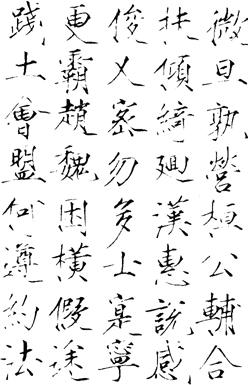 微旦孰營桓公輔合
扶傾綺廻漢惠說感
俊乂密勿多士寔寧
更霸趙魏困橫假途
踐土會盟何遵約法